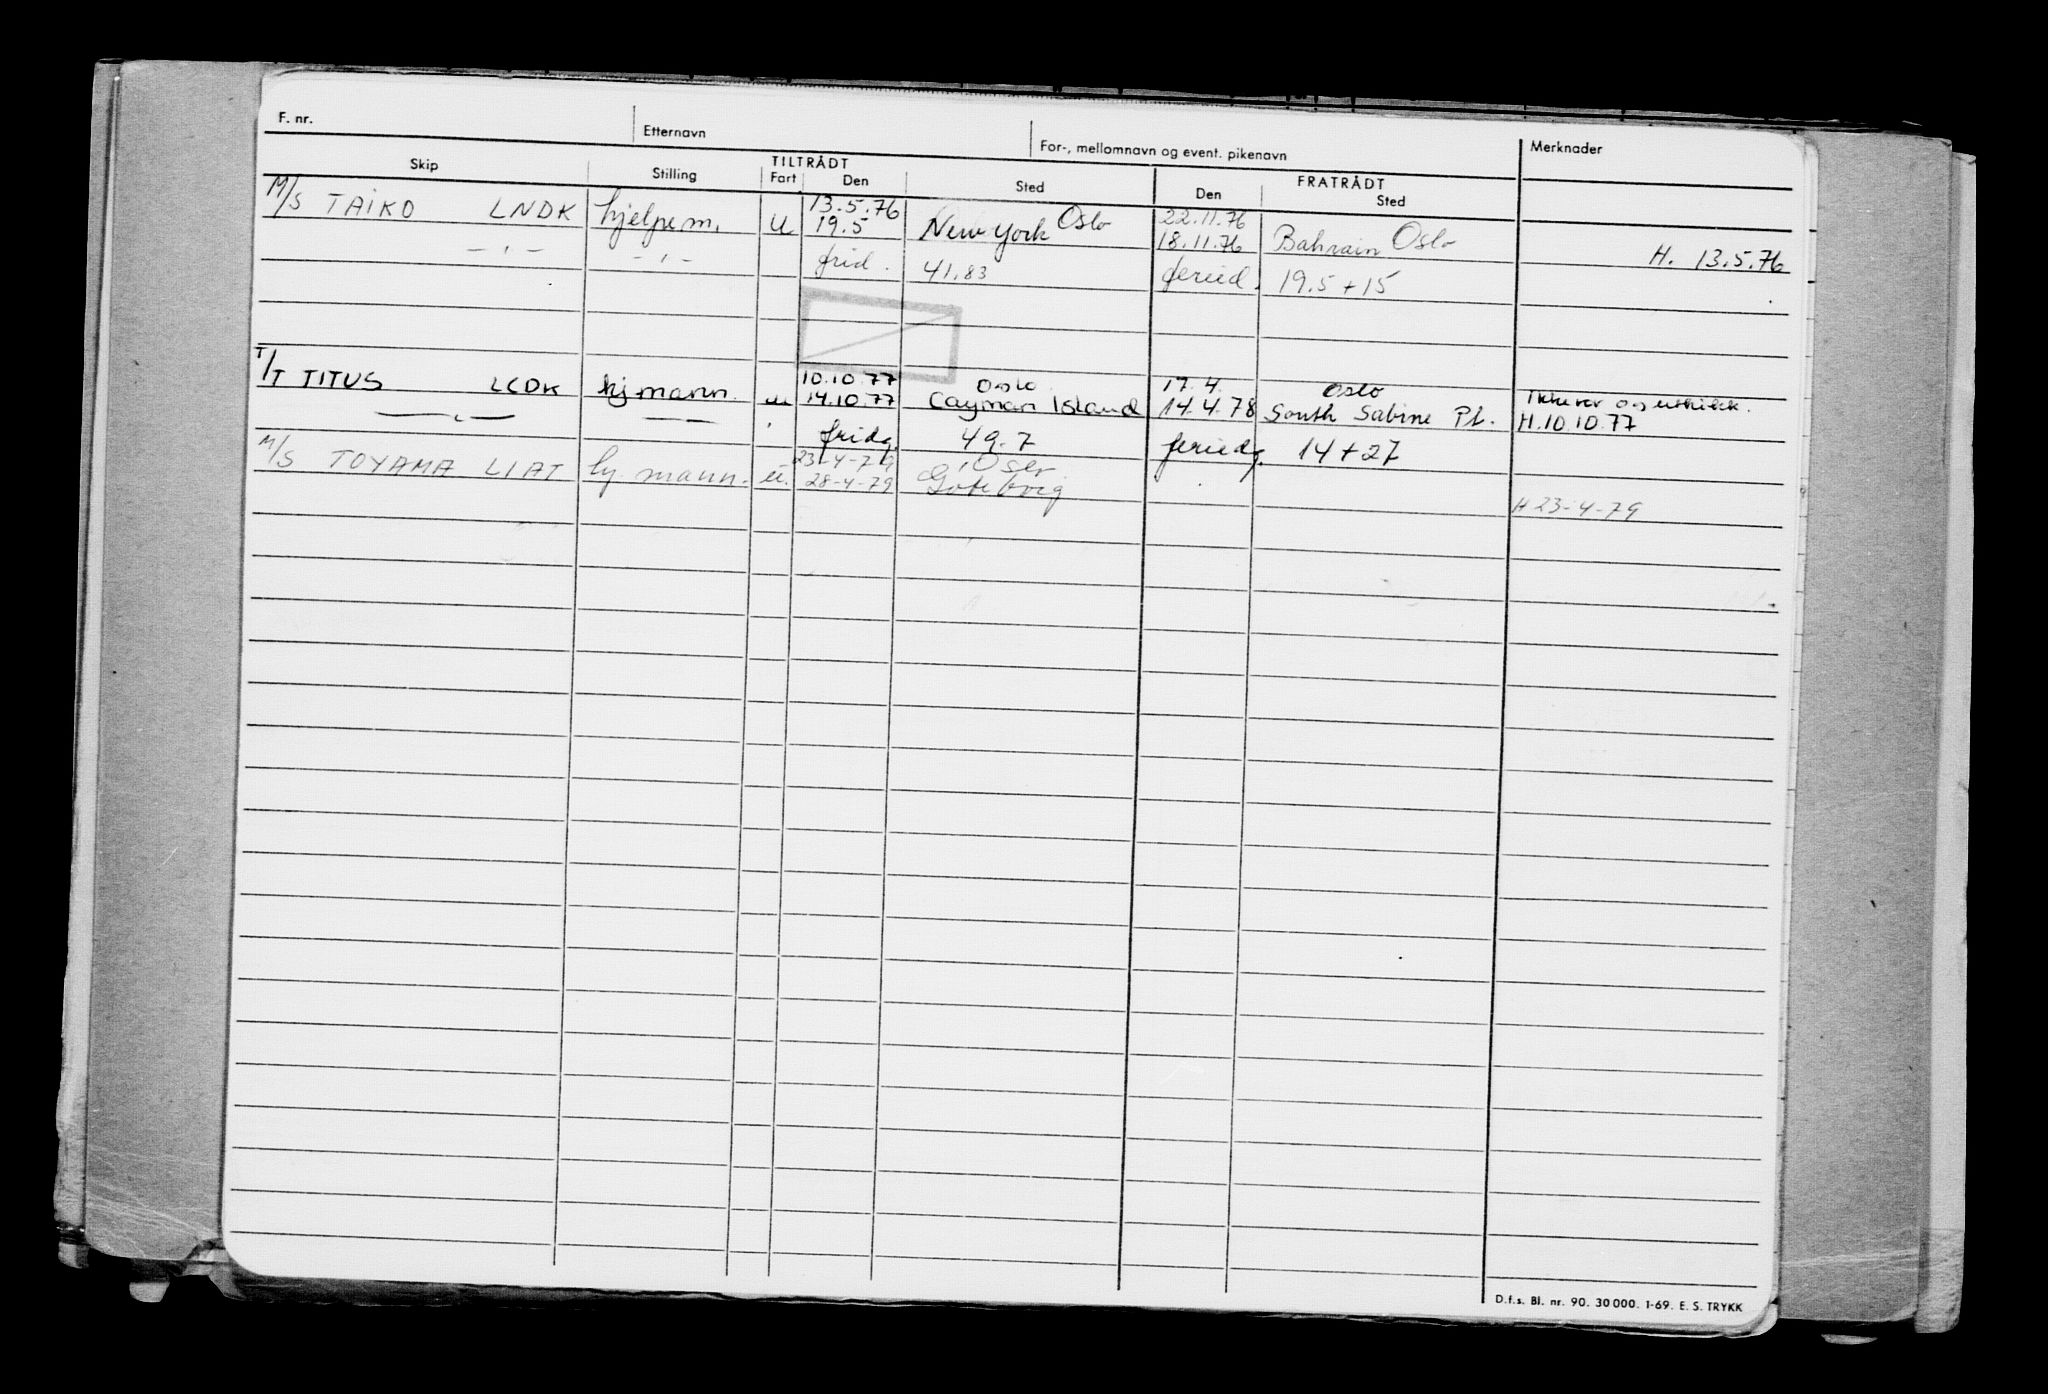 F. nr. Etternavn For-, mellomnavn og event. pikenavn Merknader
TILTRÅDT FRATRÅDT
Skip Stilling Fart Den Sted Den Sted
13.5.76 Oslo 22.11.76 Oslo
M/S TAIKO LNDK hjelpem. U 19.5 New York 18.11.76 Bahrain H. 13.5.76
— " — — " — frid. 41.83 feried. 19.5 + 15
10.10.77 Oslo 17.4. Oslo
T/T TITUS LCDK hj mann. u 14.10.77 Cayman Island 14.4.78 South Sabine Pt. H.10.10.77
fridg. 49.7 feriedg. 14 + 27
23-4-79
M/S TOYAMA LIAT hj. mann. u. 28-4-79 H 23-4-79
D.f.s. Bl. nr. 90. 30 000. 1-69. E. S. TRYKK